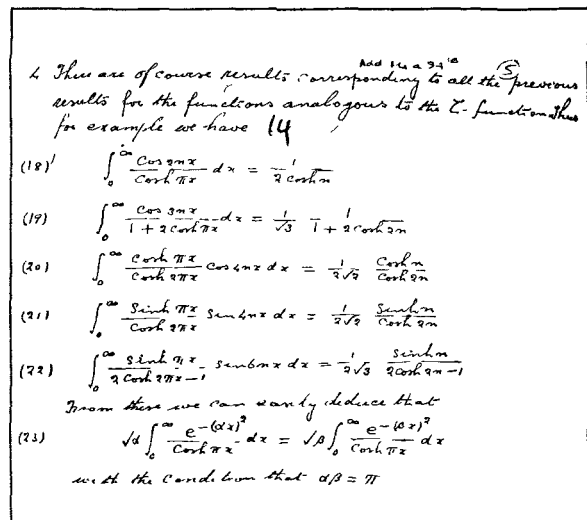 4 There are of course results corresponding to all the previous 5
results for the functions analogous to the ζ-function. Thus
for example we have 14
(18) ∫₀^∞ Cos 2nx / Cosh πx dx = 1 / 2 cosh n
(19) ∫₀^∞ Cos 3nx / 1 + 2 cosh πx dx = 1/√3 1 / 1 + 2 cosh 2n
(20) ∫₀^∞ Cosh πx / Cosh 2πx cos 4nx dx = 1/2√2 Cosh n / Cosh 2n
(21) ∫₀^∞ Sinh πx / Cosh 2πx sin 4nx dx = 1/2√2 Sinh n / Cosh 2n
(22) ∫₀^∞ Sinh πx / 2 Cosh 2πx - 1 sin 6nx dx = 1/2√3 Sinh n / 2 cosh 2n - 1
From these we can easily deduce that
(23) √α ∫₀^∞ e^-(αx)² / Cosh πx dx = √β ∫₀^∞ e^-(βx)² / Cosh πx dx
with the condition that αβ = π